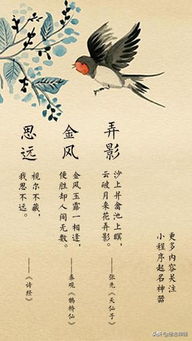 弄影
沙上并禽池上暝，
云破月来花弄影。
——张先《天仙子》
金风
金风玉露一相逢，
便胜却人间无数。
——秦观《鹊桥仙》
思远
视尔不臧，
我思不远。
——《诗经》
更多内容关注
小程序起名神器